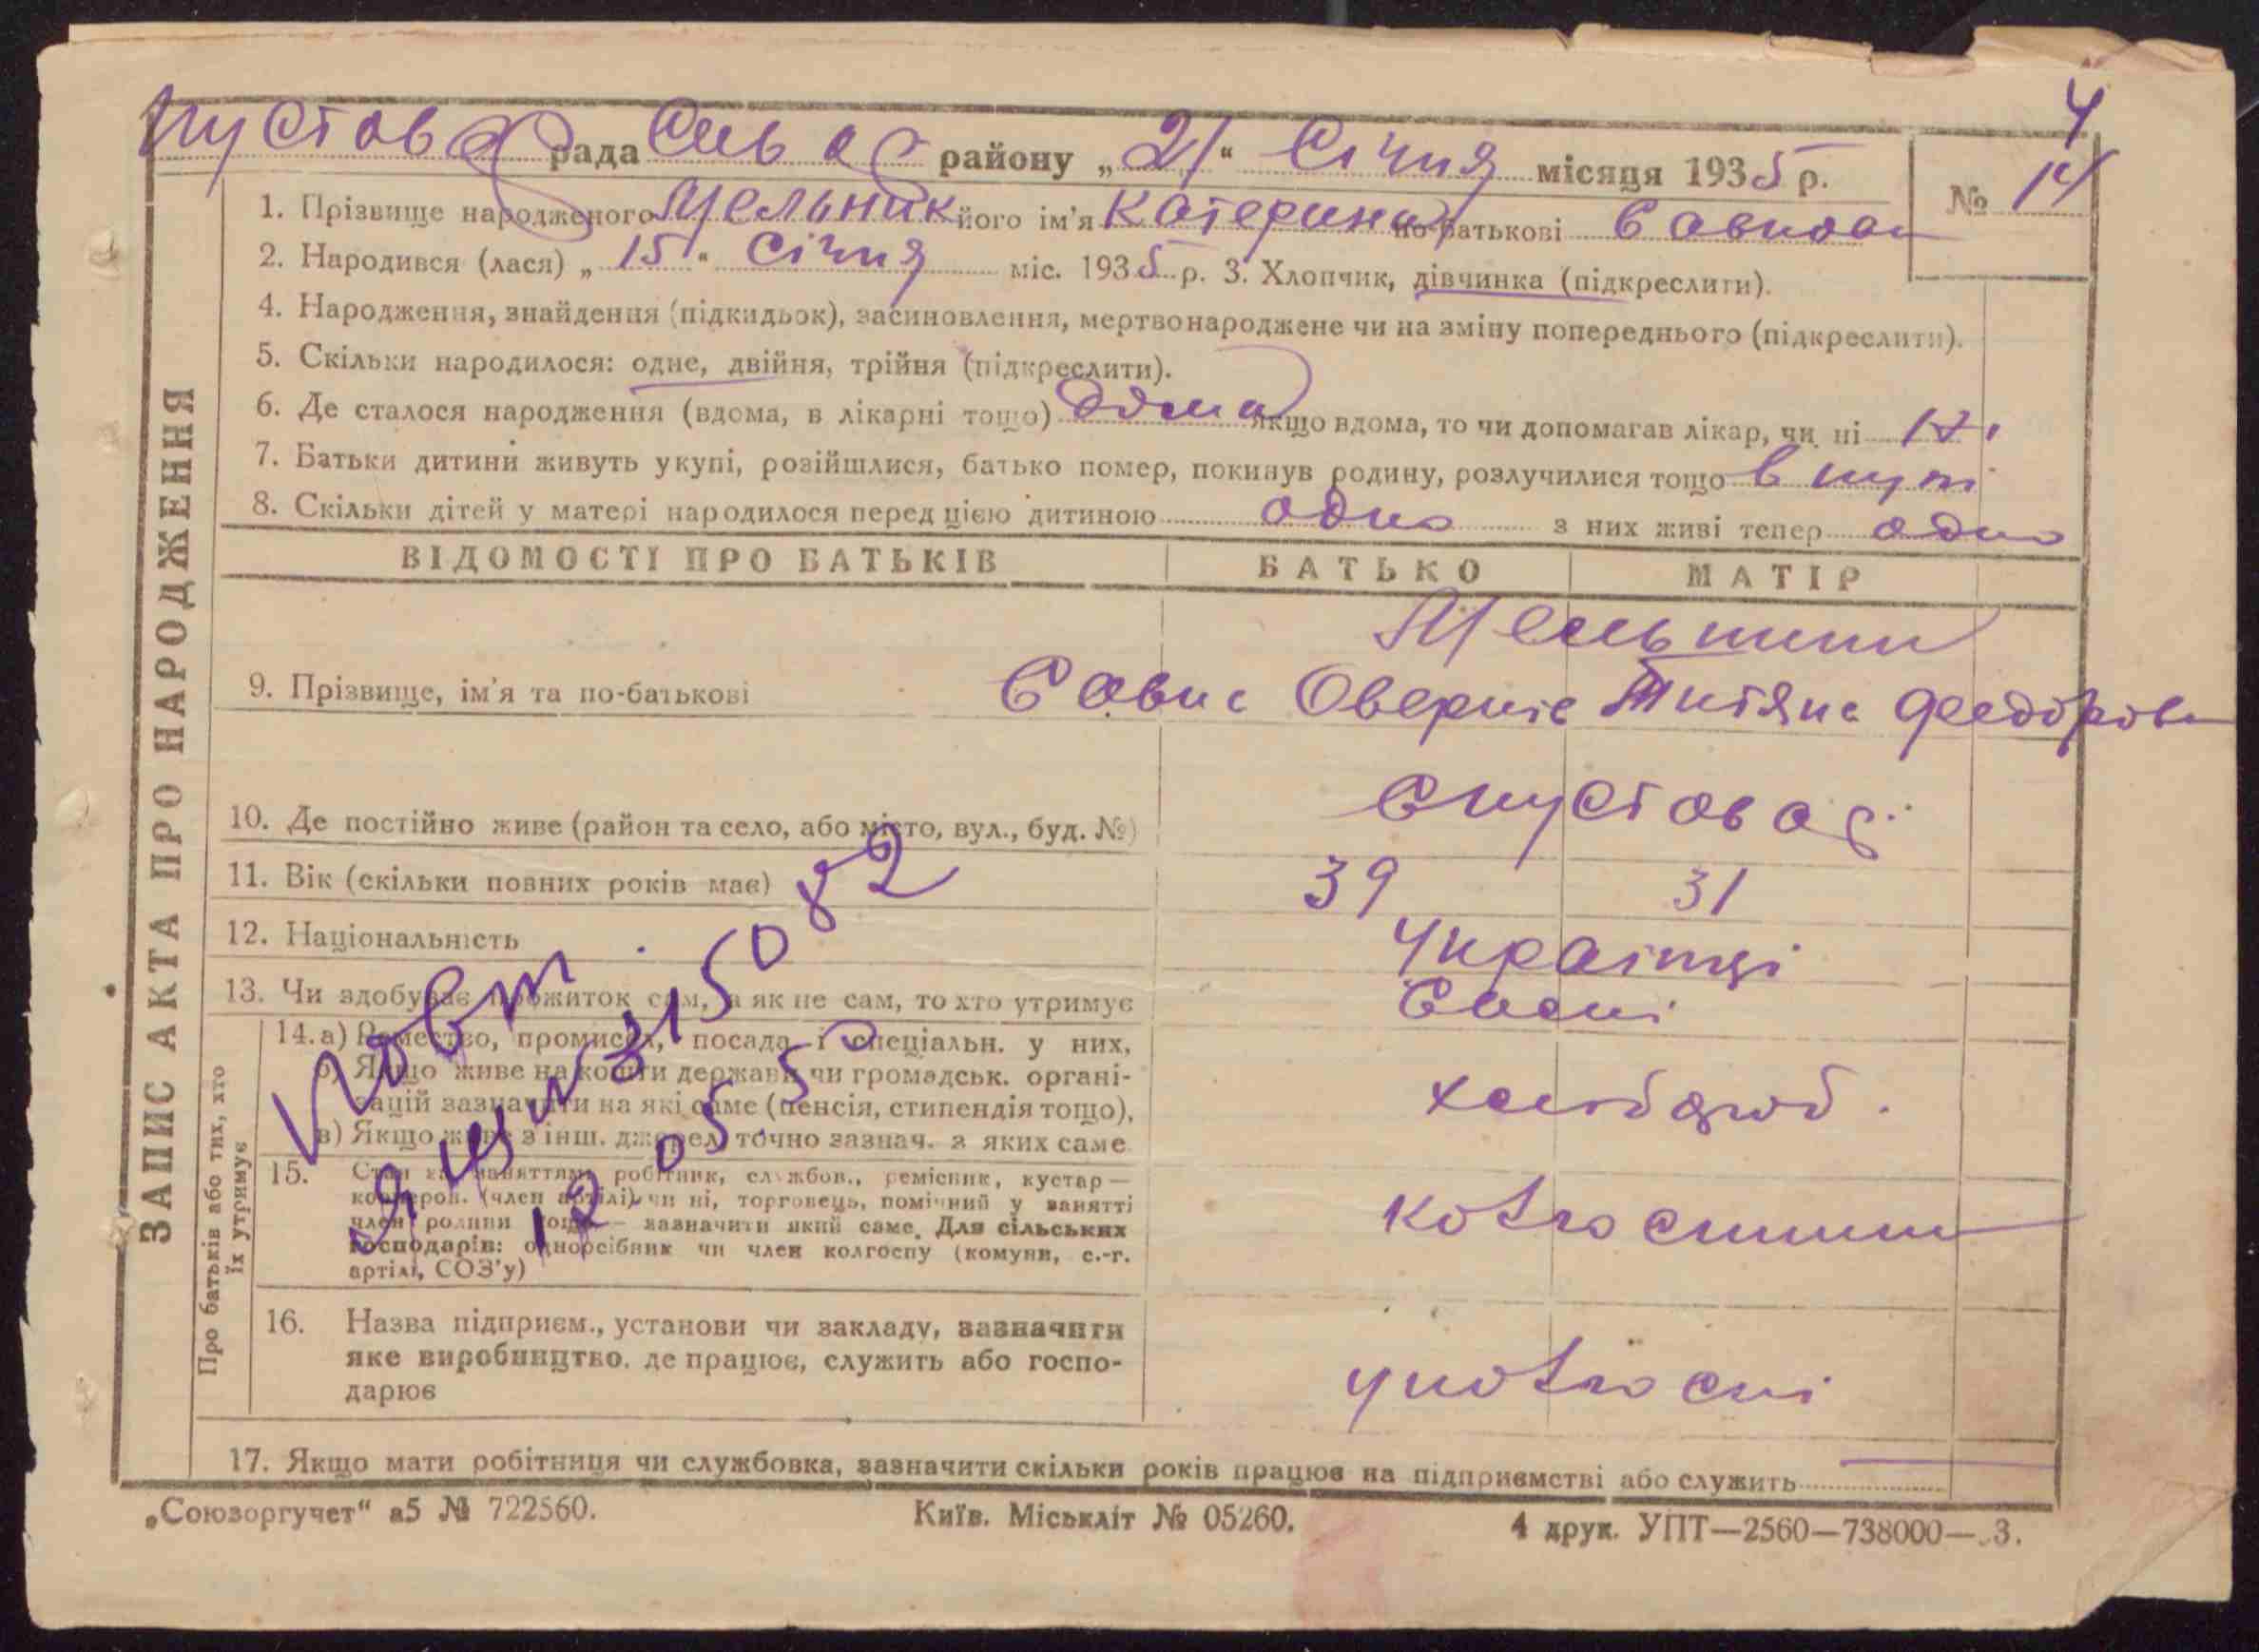 4
рада району „21“ Січня місяця 1935 р.
№ 14
1. Прізвище народженого Мельник його ім'я Катерина по-батькові Савков
2. Народився (лася) „15“ Січня міс. 1935 р. 3. Хлопчик, дівчинка (підкреслити).
4. Народження, знайдення (підкидьок), засиновлення, мертвонароджене чи на зміну попереднього (підкреслити).
5. Скільки народилося: одне, двійня, трійня (підкреслити).
6. Де сталося народження (вдома, в лікарні тощо) дома якщо вдома, то чи допомагав лікар, чи ні
7. Батьки дитини живуть укупі, розійшлися, батько помер, покинув родину, розлучилися тощо вкупі
8. Скільки дітей у матері народилося перед цією дитиною одно з них живі тепер одно
ВІДОМОСТІ ПРО БАТЬКІВ БАТЬКО МАТІР
9. Прізвище, ім'я та по-батькові
10. Де постійно живе (район та село, або місто, вул., буд. №)
11. Вік (скільки повних років має) 39 31
12. Національність Українці
13. Чи здобуває прожиток сам, а як не сам, то хто утримує Самі
14. а) Ремество, промисел, посада і спеціальн. у них,
б) Якщо живе на кошти держави чи громадськ. органі-
зацій зазначити на які саме (пенсія, стипендія тощо),
в) Якщо живе з інш. джерел точно зазнач. з яких саме
хлібороб.
15. Стан за заняттям, робітник, службов., ремісник, кустар—
кооперов. (член артілі) чи ні, торговець, помічний у занятті
член родини тощо — зазначити який саме. Для сільських
господарів: одноосібник чи член колгоспу (комуни, с.-г.
артілі, СОЗ'у)
16. Назва підприєм., установи чи закладу, зазначити
яке виробництво. де працює, служить або госпо-
дарює
у колгоспі
17. Якщо мати робітниця чи службовка, зазначити скільки років працює на підприємстві або служить
ЗАПИС АКТА ПРО НАРОДЖЕННЯ
Про батьків або тих, хто
їх утримує
„Союзоргучет“ а5 № 722560. Київ. Міськліт № 05260. 4 друк. УПТ—2560—738000—3.